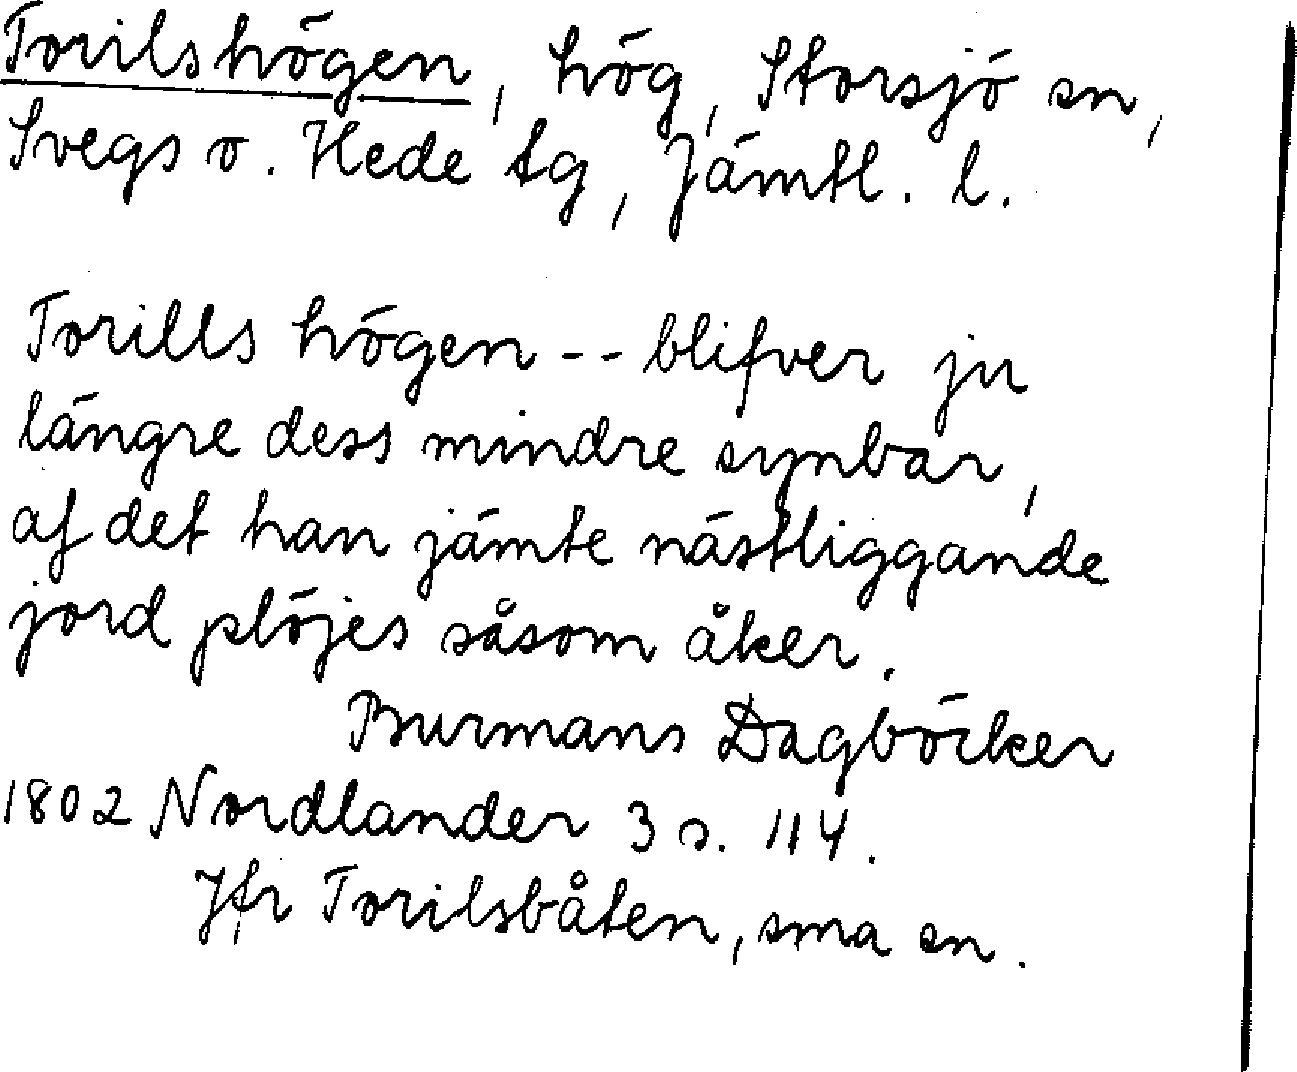 Torilshögen, hög, Storsjö sn,
Svegs o. Hede tg, Jämtl. l.
Torills högen -- blifver ju
längre dess mindre synbar,
af det han jämte nästliggande
jord plöjes såsom åker.
Burmans Dagböcker
1802 Nordlander 3 s. 114.
Jfr Torilsbåten, sma sn.